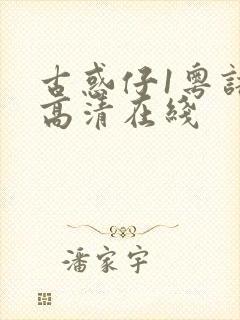 古惑仔1粤語
高清在綫
潘家宇